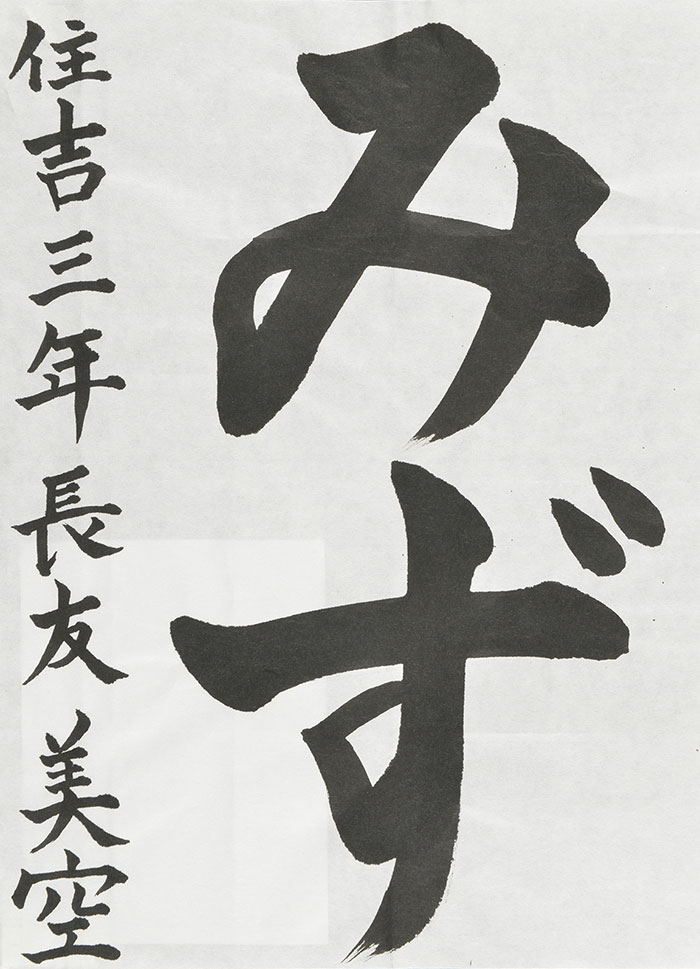 みず
住吉三年 長友 美空